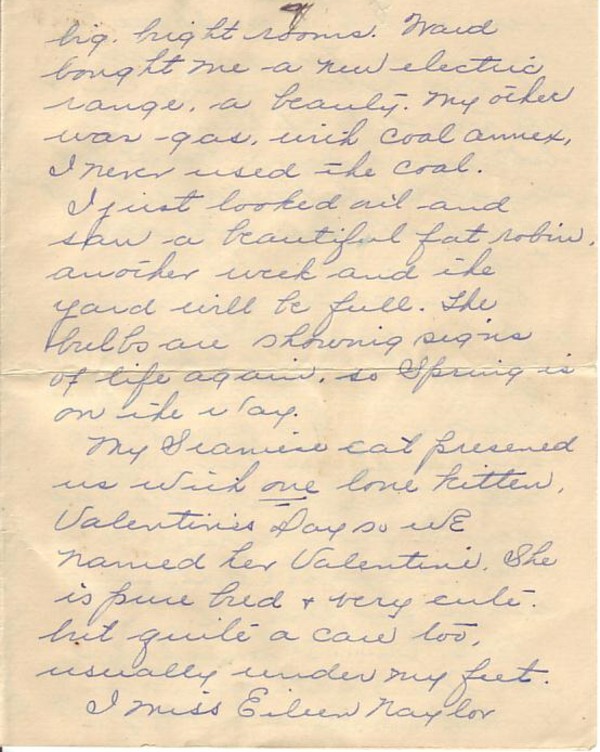 big, bright rooms. Ward
bought me a new electric
range, a beauty. My other
was gas, with coal annex,
I never used the coal.
I just looked out and
saw a beautiful fat robin,
another week and the
yard will be full. The
bulbs are showing signs
of life again, so Spring is
on the way.
My Siamese cat presened
us with one lone kitten,
Valentines Day so we
named her Valentine. She
is pure bred + very cute.
but quite a care too,
usually under my feet.
I miss Eileen Naylor